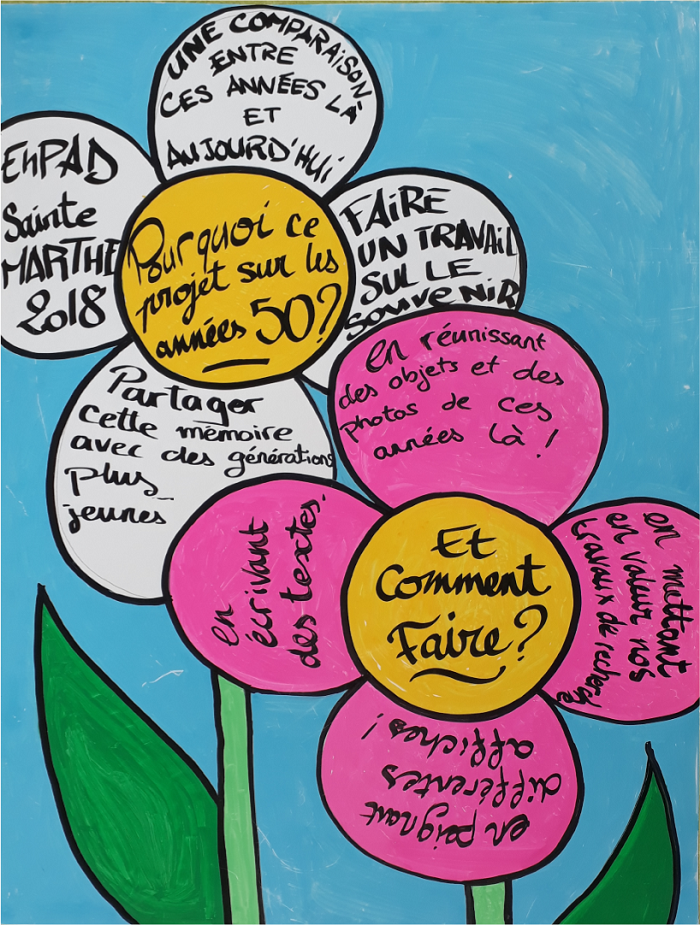 UNE COMPARAISON
ENTRE
CES ANNÉES LÀ
ET
AUJOURD'HUI
EHPAD
Sainte
MARTHE
2018
Pourquoi ce
projet sur les
années 50?
FAIRE
UN TRAVAIL
SUR LE
SOUVENIR
Partager
cette mémoire
avec des générations
plus
jeunes
en réunissant
des objets et des
photos de ces
années là !
en
écrivant
des textes.
Et
Comment
Faire?
en mettant
en valeur nos
travaux de recherche
en peignant
différentes
affiches !